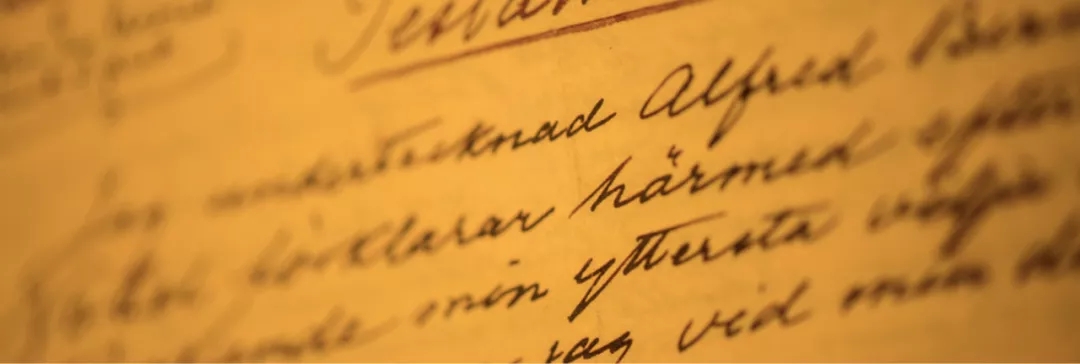 Testam
Jag undertecknad Alfred Bern
Nobel förklarar härmed efter
min yttersta vilja
jag vid min